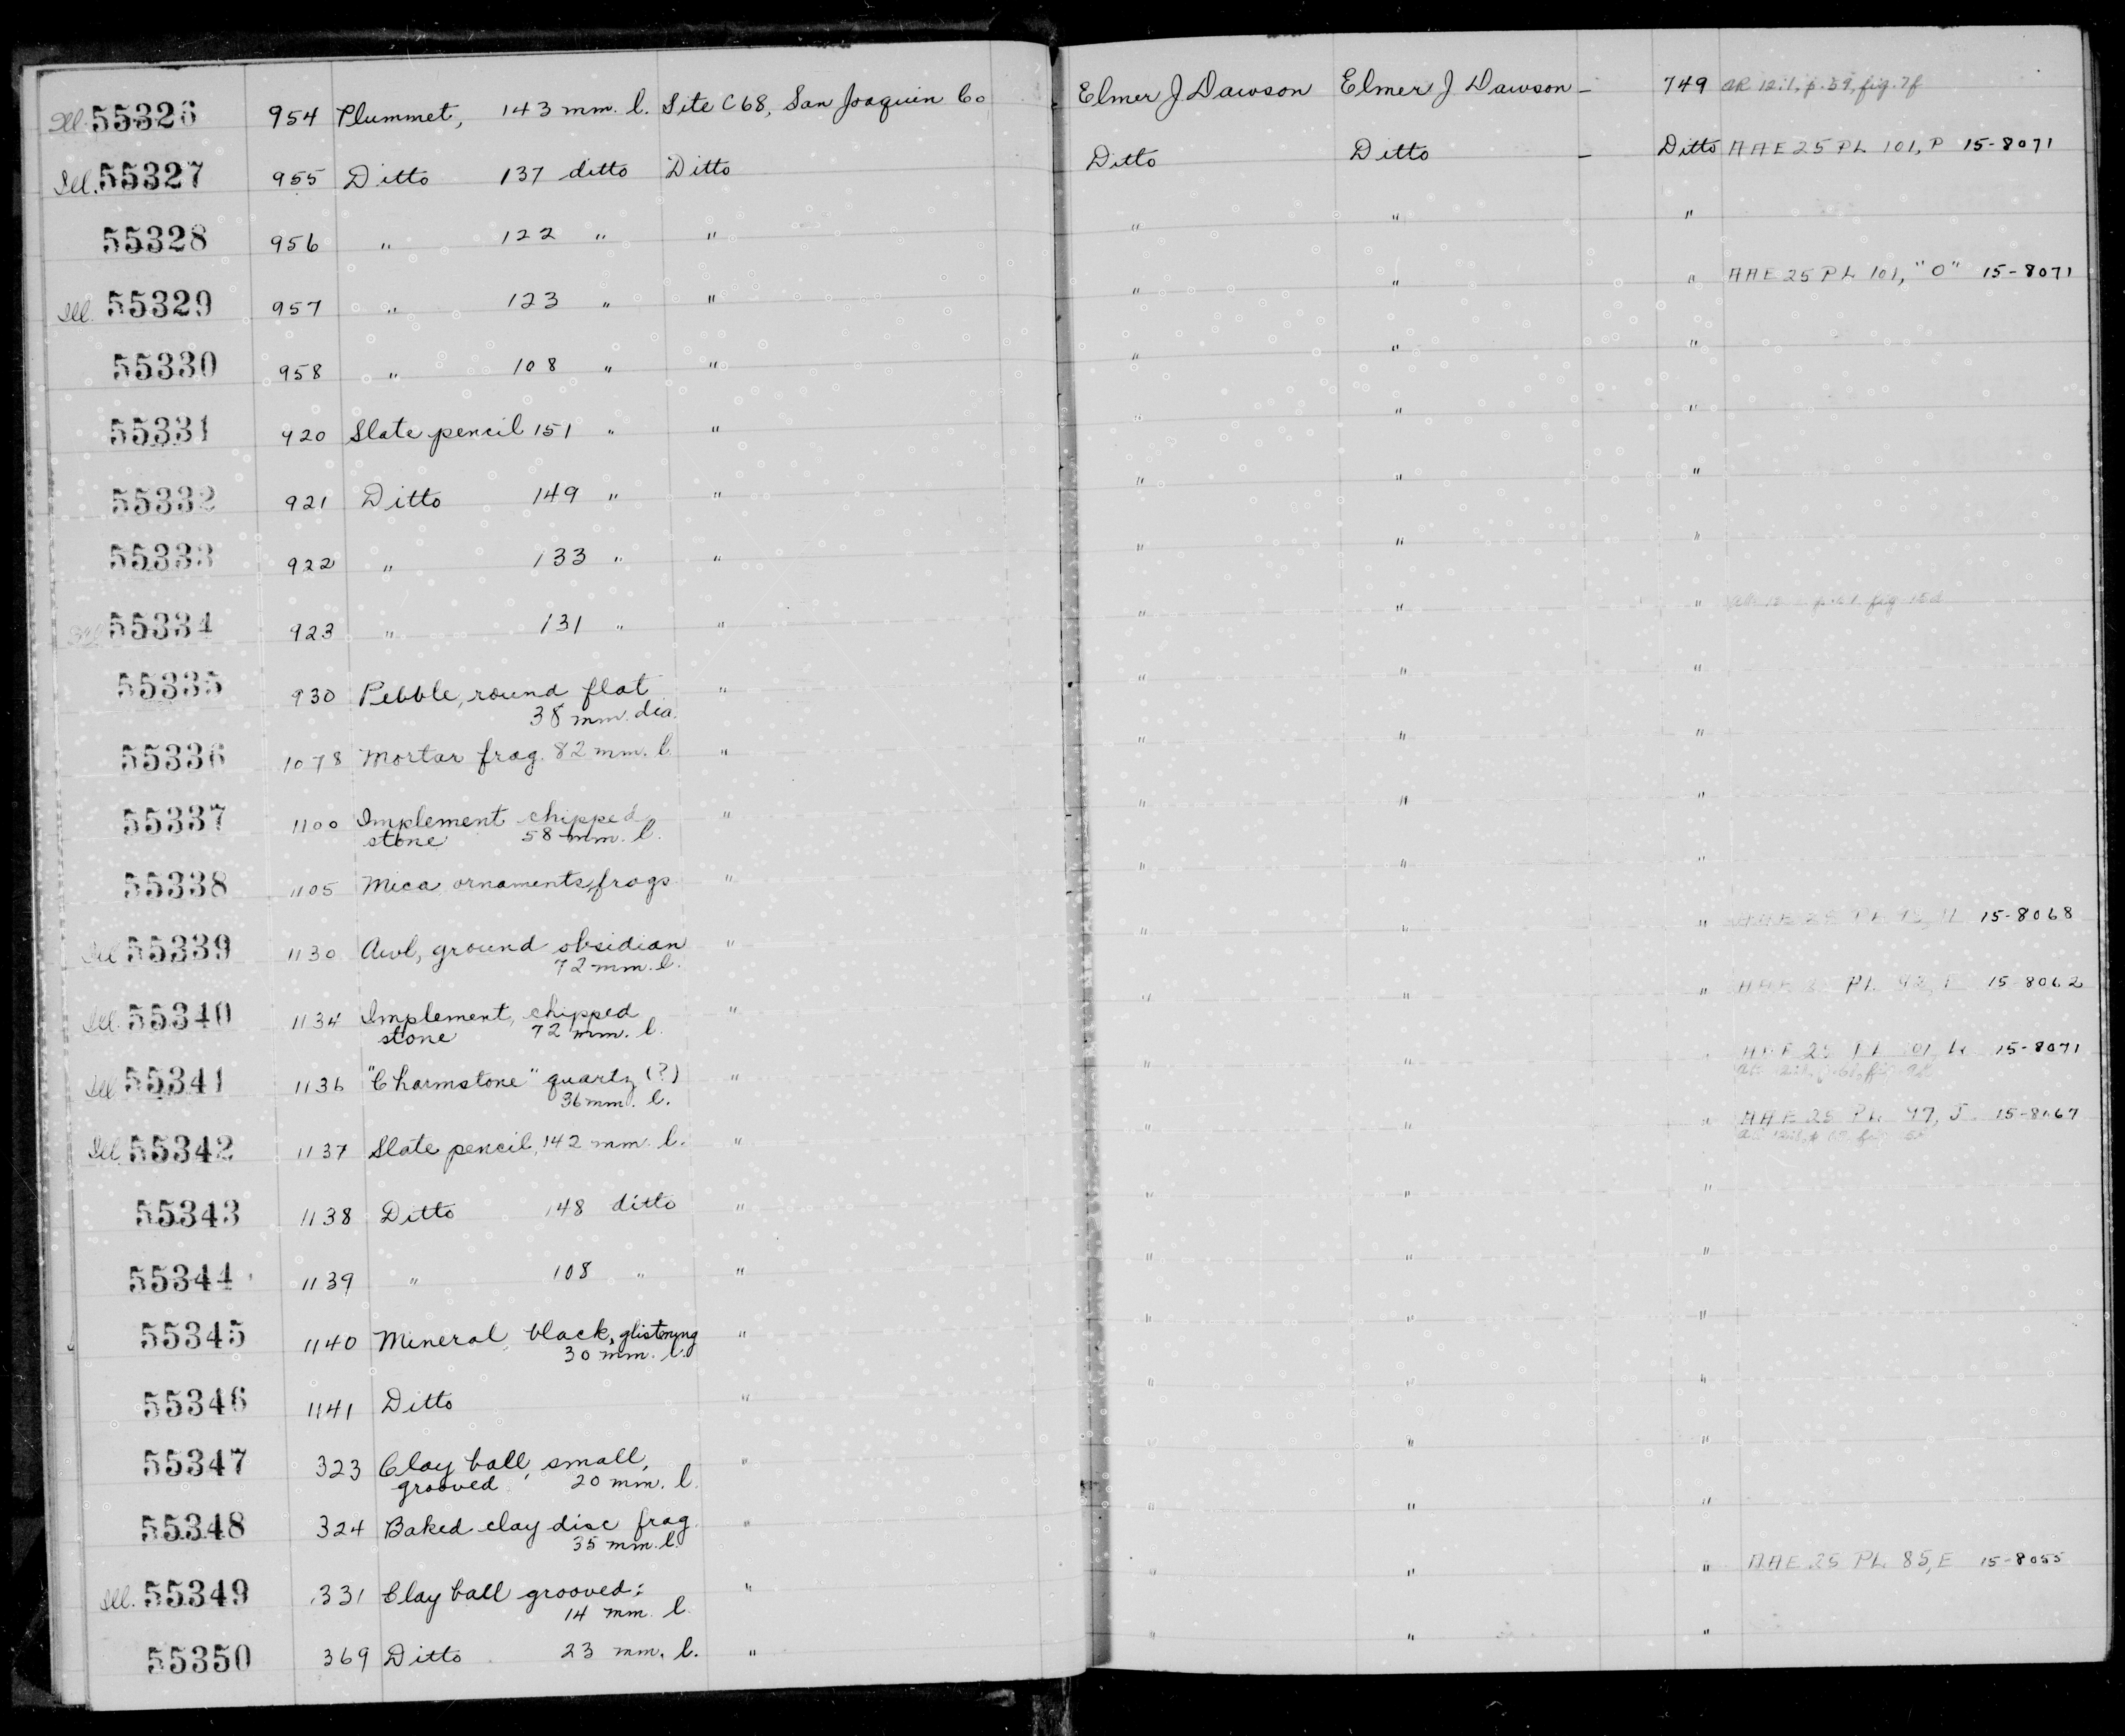 Ill. 55326 954 Plummet, 143 mm. l. Site C68, San Joaquin Co Elmer J Dawson Elmer J Dawson – 749 AR 12:1, p. 59, fig. 7f
Ill. 55327 955 Ditto 137 ditto Ditto Ditto Ditto – Ditto AAE 25 PL 101, P 15-8071
55328 956 " 122 " " " " "
Ill. 55329 957 " 123 " " " " " AAE 25 PL 101, "O" 15-8071
55330 958 " 108 " " " " "
55331 920 Slate pencil 151 " " " " "
55332 921 Ditto 149 " " " " "
55333 922 " 133 " " " " "
Ill 55334 923 " 131 " " " " " fig 15d
55335 930 Pebble, round flat " " " "
38 mm. dia.
55336 1078 Mortar frag. 82 mm. l. " " " "
55337 1100 Implement chipped " " " "
stone 58 mm. l.
55338 1105 Mica ornaments, frags " " " "
Ill 55339 1130 Awl, ground obsidian " " " " AAE 25 PL 15-8068
72 mm. l.
Ill. 55340 1134 Implement, chipped " " " " AAE PL 15-8062
stone 72 mm. l.
Ill 55341 1136 "Charmstone" quartz (?) " " " " AAE 25 PL 101, 15-8071
36 mm. l.
Ill. 55342 1137 Slate pencil, 142 mm. l. " " " " AAE 25 PL 97, J 15-8067
55343 1138 Ditto 148 ditto " " " "
55344 1139 " 108 " " " " "
55345 1140 Mineral, black, glistening " " " "
30 mm. l.
55346 1141 Ditto " " " "
55347 323 Clay ball, small, " " " "
grooved 20 mm. l.
55348 324 Baked clay disc frag. " " " "
35 mm. l.
Ill. 55349 331 Clay ball grooved; " " " " AAE 25 PL 85, E 15-8055
14 mm. l.
55350 369 Ditto 23 mm. l. " " " "